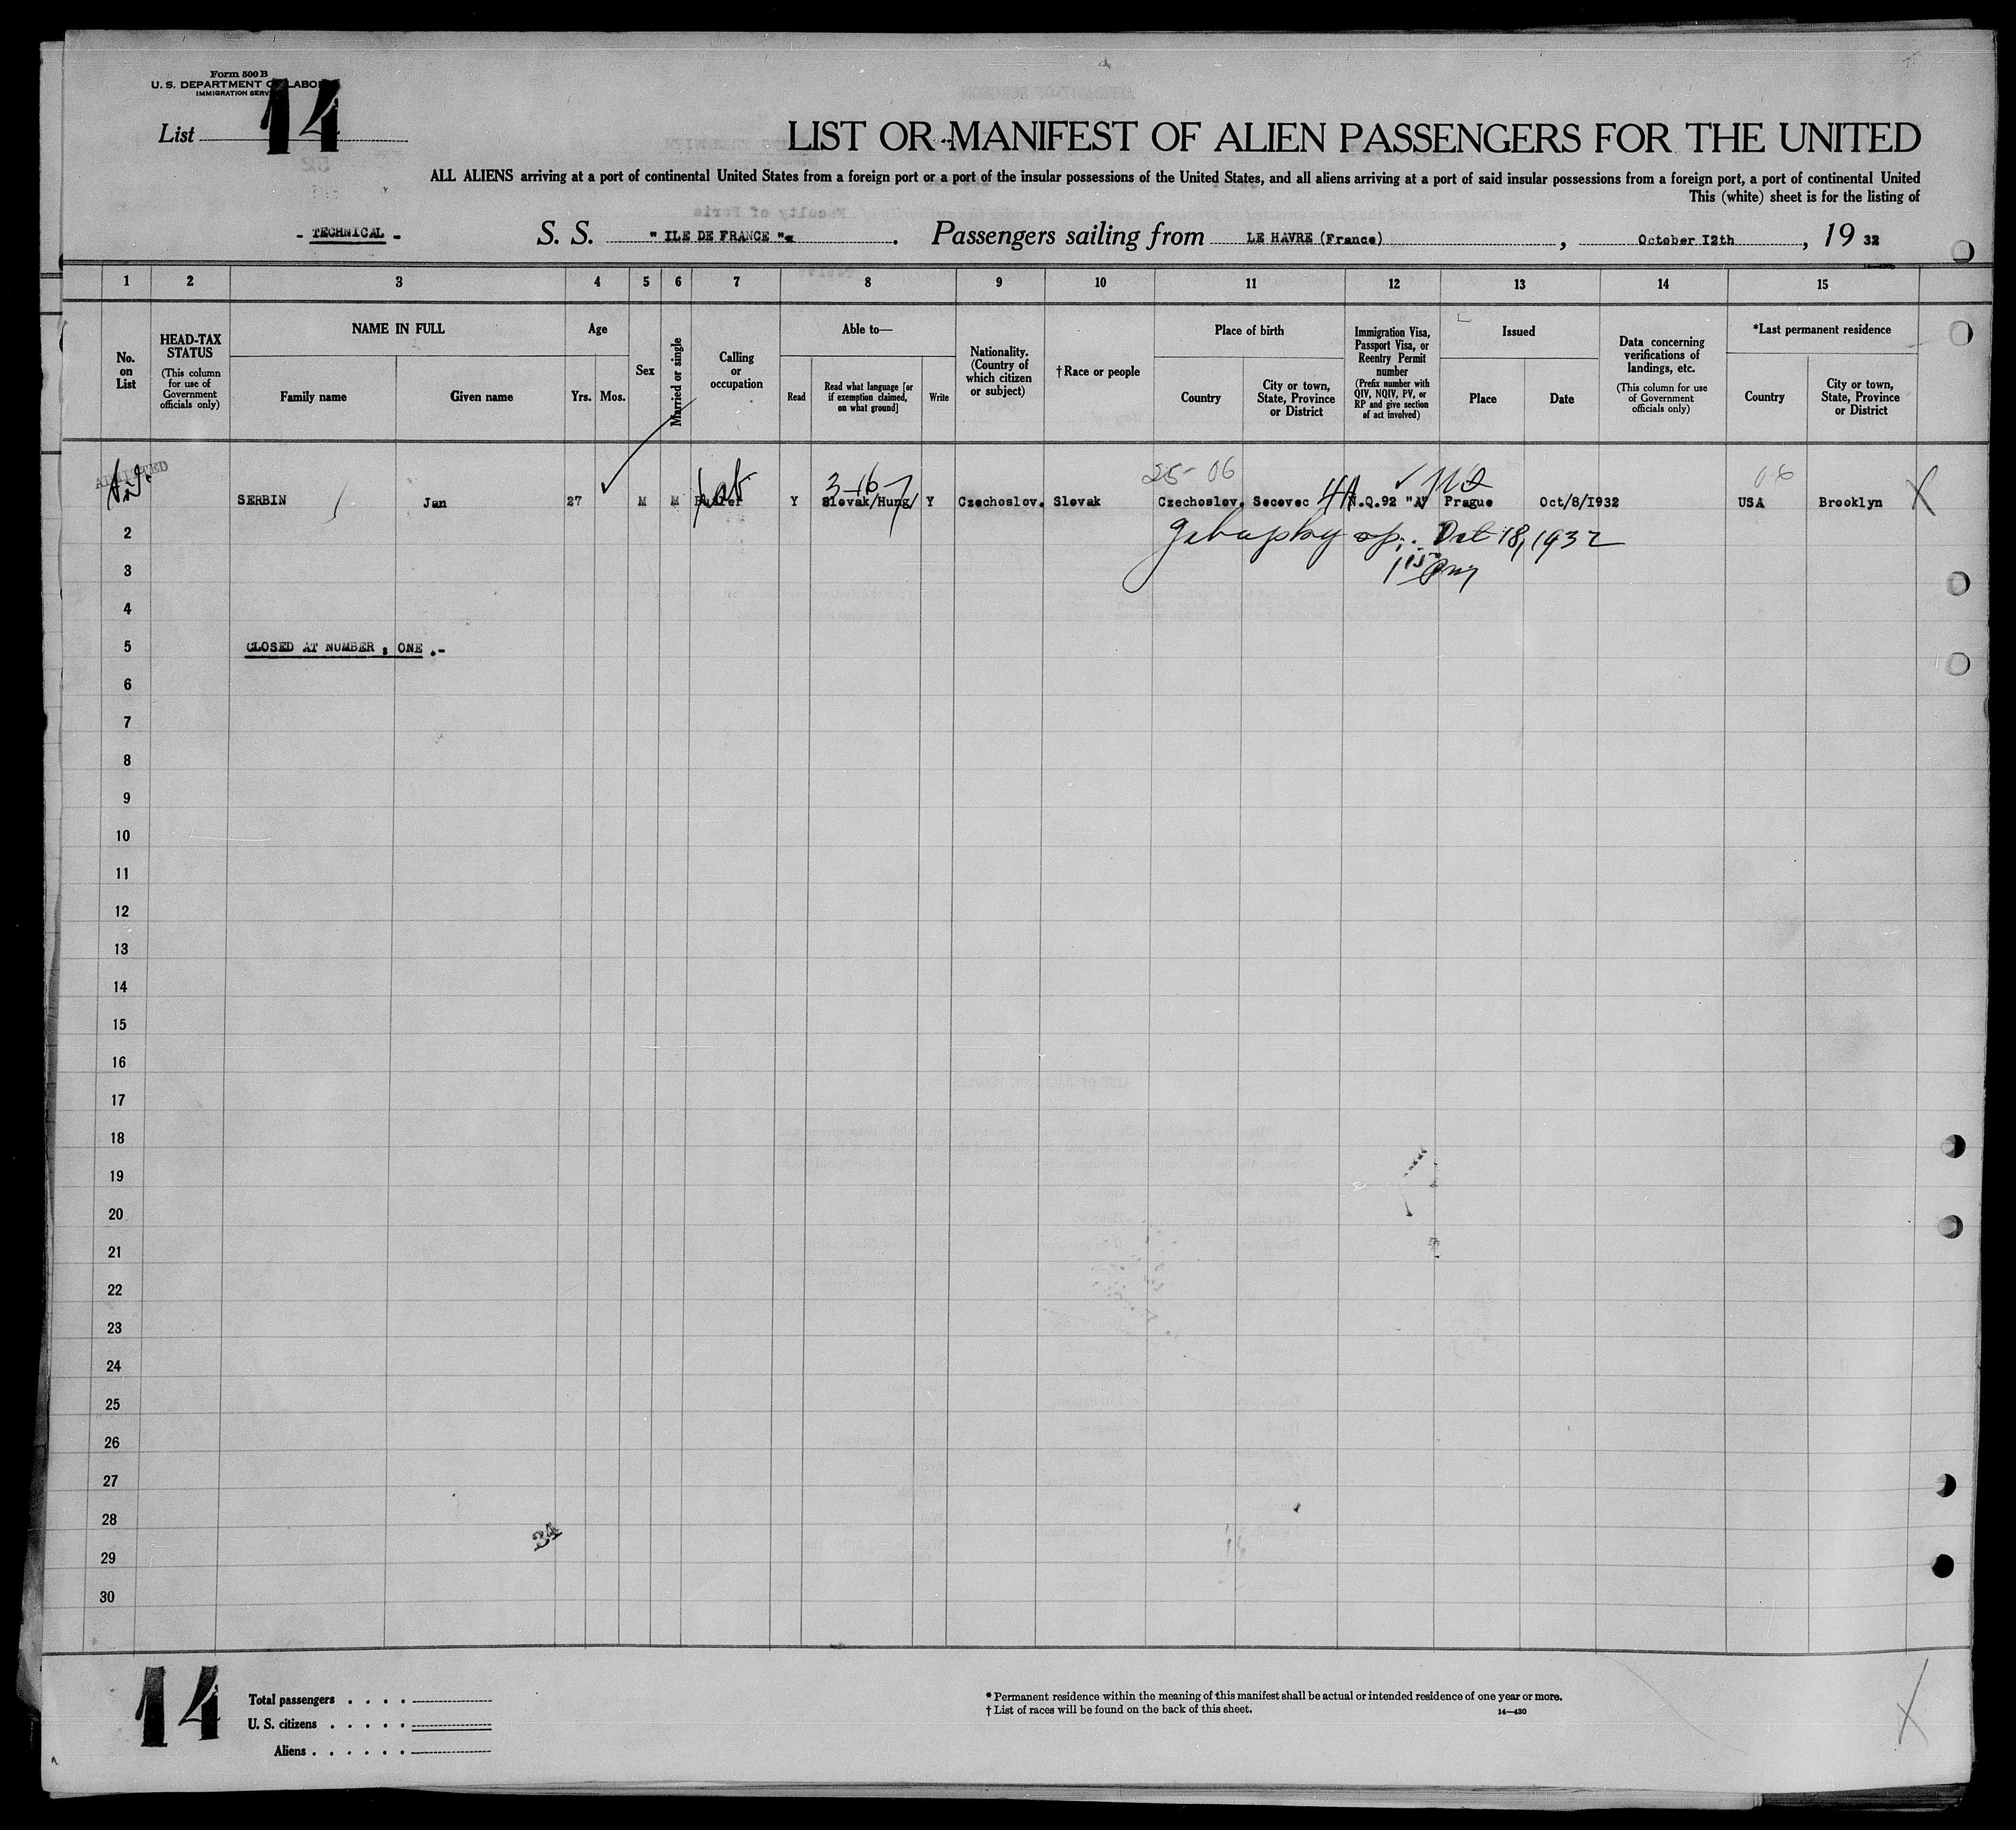 Form 500 B
U. S. DEPARTMENT OF LABOR
IMMIGRATION SERV
List 14
LIST OR MANIFEST OF ALIEN PASSENGERS FOR THE UNITED
ALL ALIENS arriving at a port of continental United States from a foreign port or a port of the insular possessions of the United States, and all aliens arriving at a port of said insular possessions from a foreign port, a port of continental United
This (white) sheet is for the listing of
- TECHNICAL - S. S. " ILE DE FRANCE ". Passengers sailing from LE HAVRE (France) , October I2th , 19 32
1 2 3 4 5 6 7 8 9 10 11 12 13 14 15
No. on List
HEAD-TAX STATUS
(This column for use of Government officials only)
NAME IN FULL
Family name Given name
Age
Yrs. Mos.
Sex
Married or single
Calling or occupation
Able to—
Read
Read what language [or if exemption claimed, on what ground]
Write
Nationality. (Country of which citizen or subject)
† Race or people
Place of birth
Country
City or town, State, Province or District
Immigration Visa, Passport Visa, or Reentry Permit number
(Prefix number with QIV, NQIV, PV, or RP and give section of act involved)
Issued
Place Date
Data concerning verifications of landings, etc.
(This column for use of Government officials only)
*Last permanent residence
Country
City or town, State, Province or District
ADMITTED
3-16 25- 06 06
SERBIN Jan 27 M M Y Slovak/Hung/ Y Czechoslov. Slovak Czechoslov. Secovec 4A N.Q.92 "A" Prague Oct/8/I932 USA Brooklyn X
2 Oct 18, 1932
3
4
5 CLOSED AT NUMBER : ONE .-
6
7
8
9
10
11
12
13
14
15
16
17
18
19
20
21
22
23
24
25
26
27
28
34
29
30
14
Total passengers . . . .
U. S. citizens . . . . .
Aliens . . . . . .
* Permanent residence within the meaning of this manifest shall be actual or intended residence of one year or more.
† List of races will be found on the back of this sheet.
14—430
X